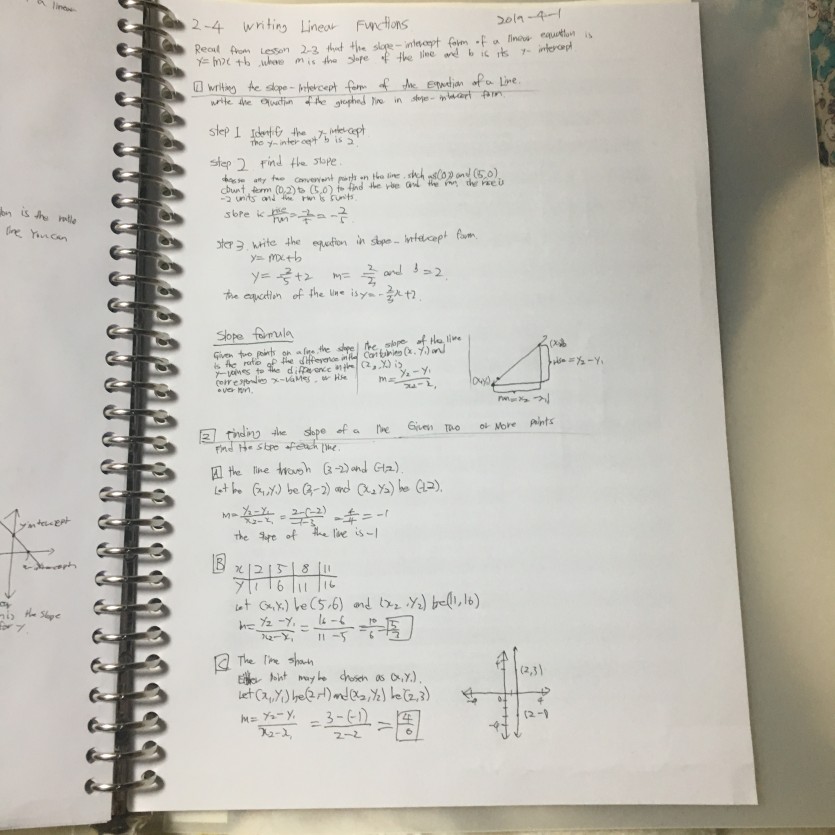 a linear
on is the ratio
line You can
y intercept
x-intercept
m is the slope
for y.
2-4 Writing Linear Functions 2019-4-1
Recall from Lesson 2-3 that the slope-intercept form of a linear equation is
y=mx+b, where m is the slope of the line and b is its y-intercept
1 Writing the slope-Intercept form of the Equation of a Line.
write the equation of the graphed line in slope-intercept form.
step 1 Identify the y-intercept
The y-intercept b is 2
step 2 Find the slope.
choose any two convenient points on the line, such as (0,2) and (5,0).
count form (0,2) to (5,0) to find the rise and the run, the rise is
-2 units and the run is 5 units.
slope is rise/run = -2/5 = -2/5.
step 3. write the equation in slope-intercept form.
y= mx+b
y= -2/5+2 m= and b=2.
the equation of the line is y=-x+2.
Slope formula
Given two points on a line, the slope
is the ratio of the difference in the
y-values to the difference in the
corresponding x-values, or rise
over run.
The slope of the line
containing (x, y1) and
(2 2, y2) is
m= y2-y1/x2-x1
rise = y2-y1
run=x2-x1
2 Finding the slope of a line Given Two or More Points
Find the slope of each line.
A the line through (3-2) and (-1,2).
Let be (x1,y1) be (3,-2) and (x2 y2) be (-1,2).
m= y2-y1/x2-x1 = 2-(-2)/-1-3 = 4/-4 = -1
the slope of the line is -1
B x 2 5 8 11
y 1 6 11 16
Let (x1,y1) be (5,6) and (x2, y2) be(11,16)
m= y2-y1/x2-x1 = 16-6/11-5 = 10/6 = 5/3
C The line shown
Either point may be chosen as (x1,y1).
Let (x1,y1) be(2,-1) and (x2,y2) be (2,3)
m= y2-y1/x2-x1 = 3-(-1)/2-2 = 4/0
(2,3)
0 4
(2-1)